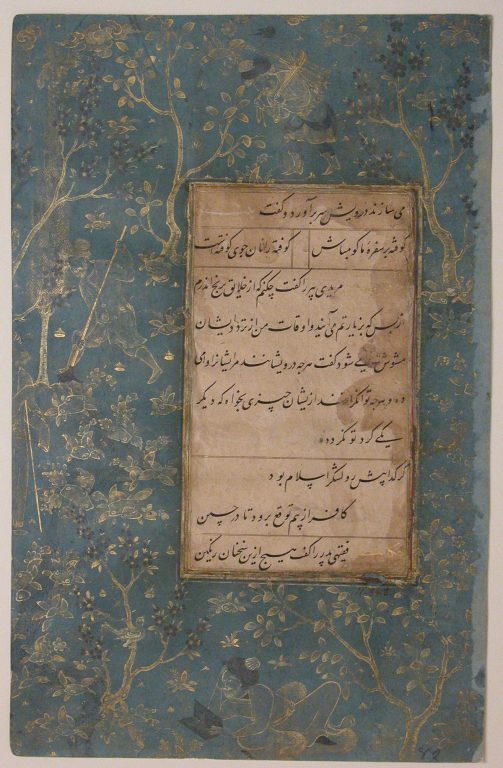 می سازند درویش سر برآورد و گفت
کوفته بر سفره ما گو مباش کوفته را نان جوی کوفته است
مریدی پیر را گفت چکنم کز خلایق برنج اندرم
از بس که بزیارتم می آیند و اوقات من از تردد ایشان
مشوش می شود گفت هرچه درویشانند مر ایشانرا وامی
ده و هرچه توانگرانند از یشان چیزی بخواه که دیگر
یکی گرد تو نگردد
گر گدا پیش رو لشکر اسلام بود
کافر از بیم توقع برود تا در چین
فقیهی پدر را گفت هیچ ازین سخنان رنگین